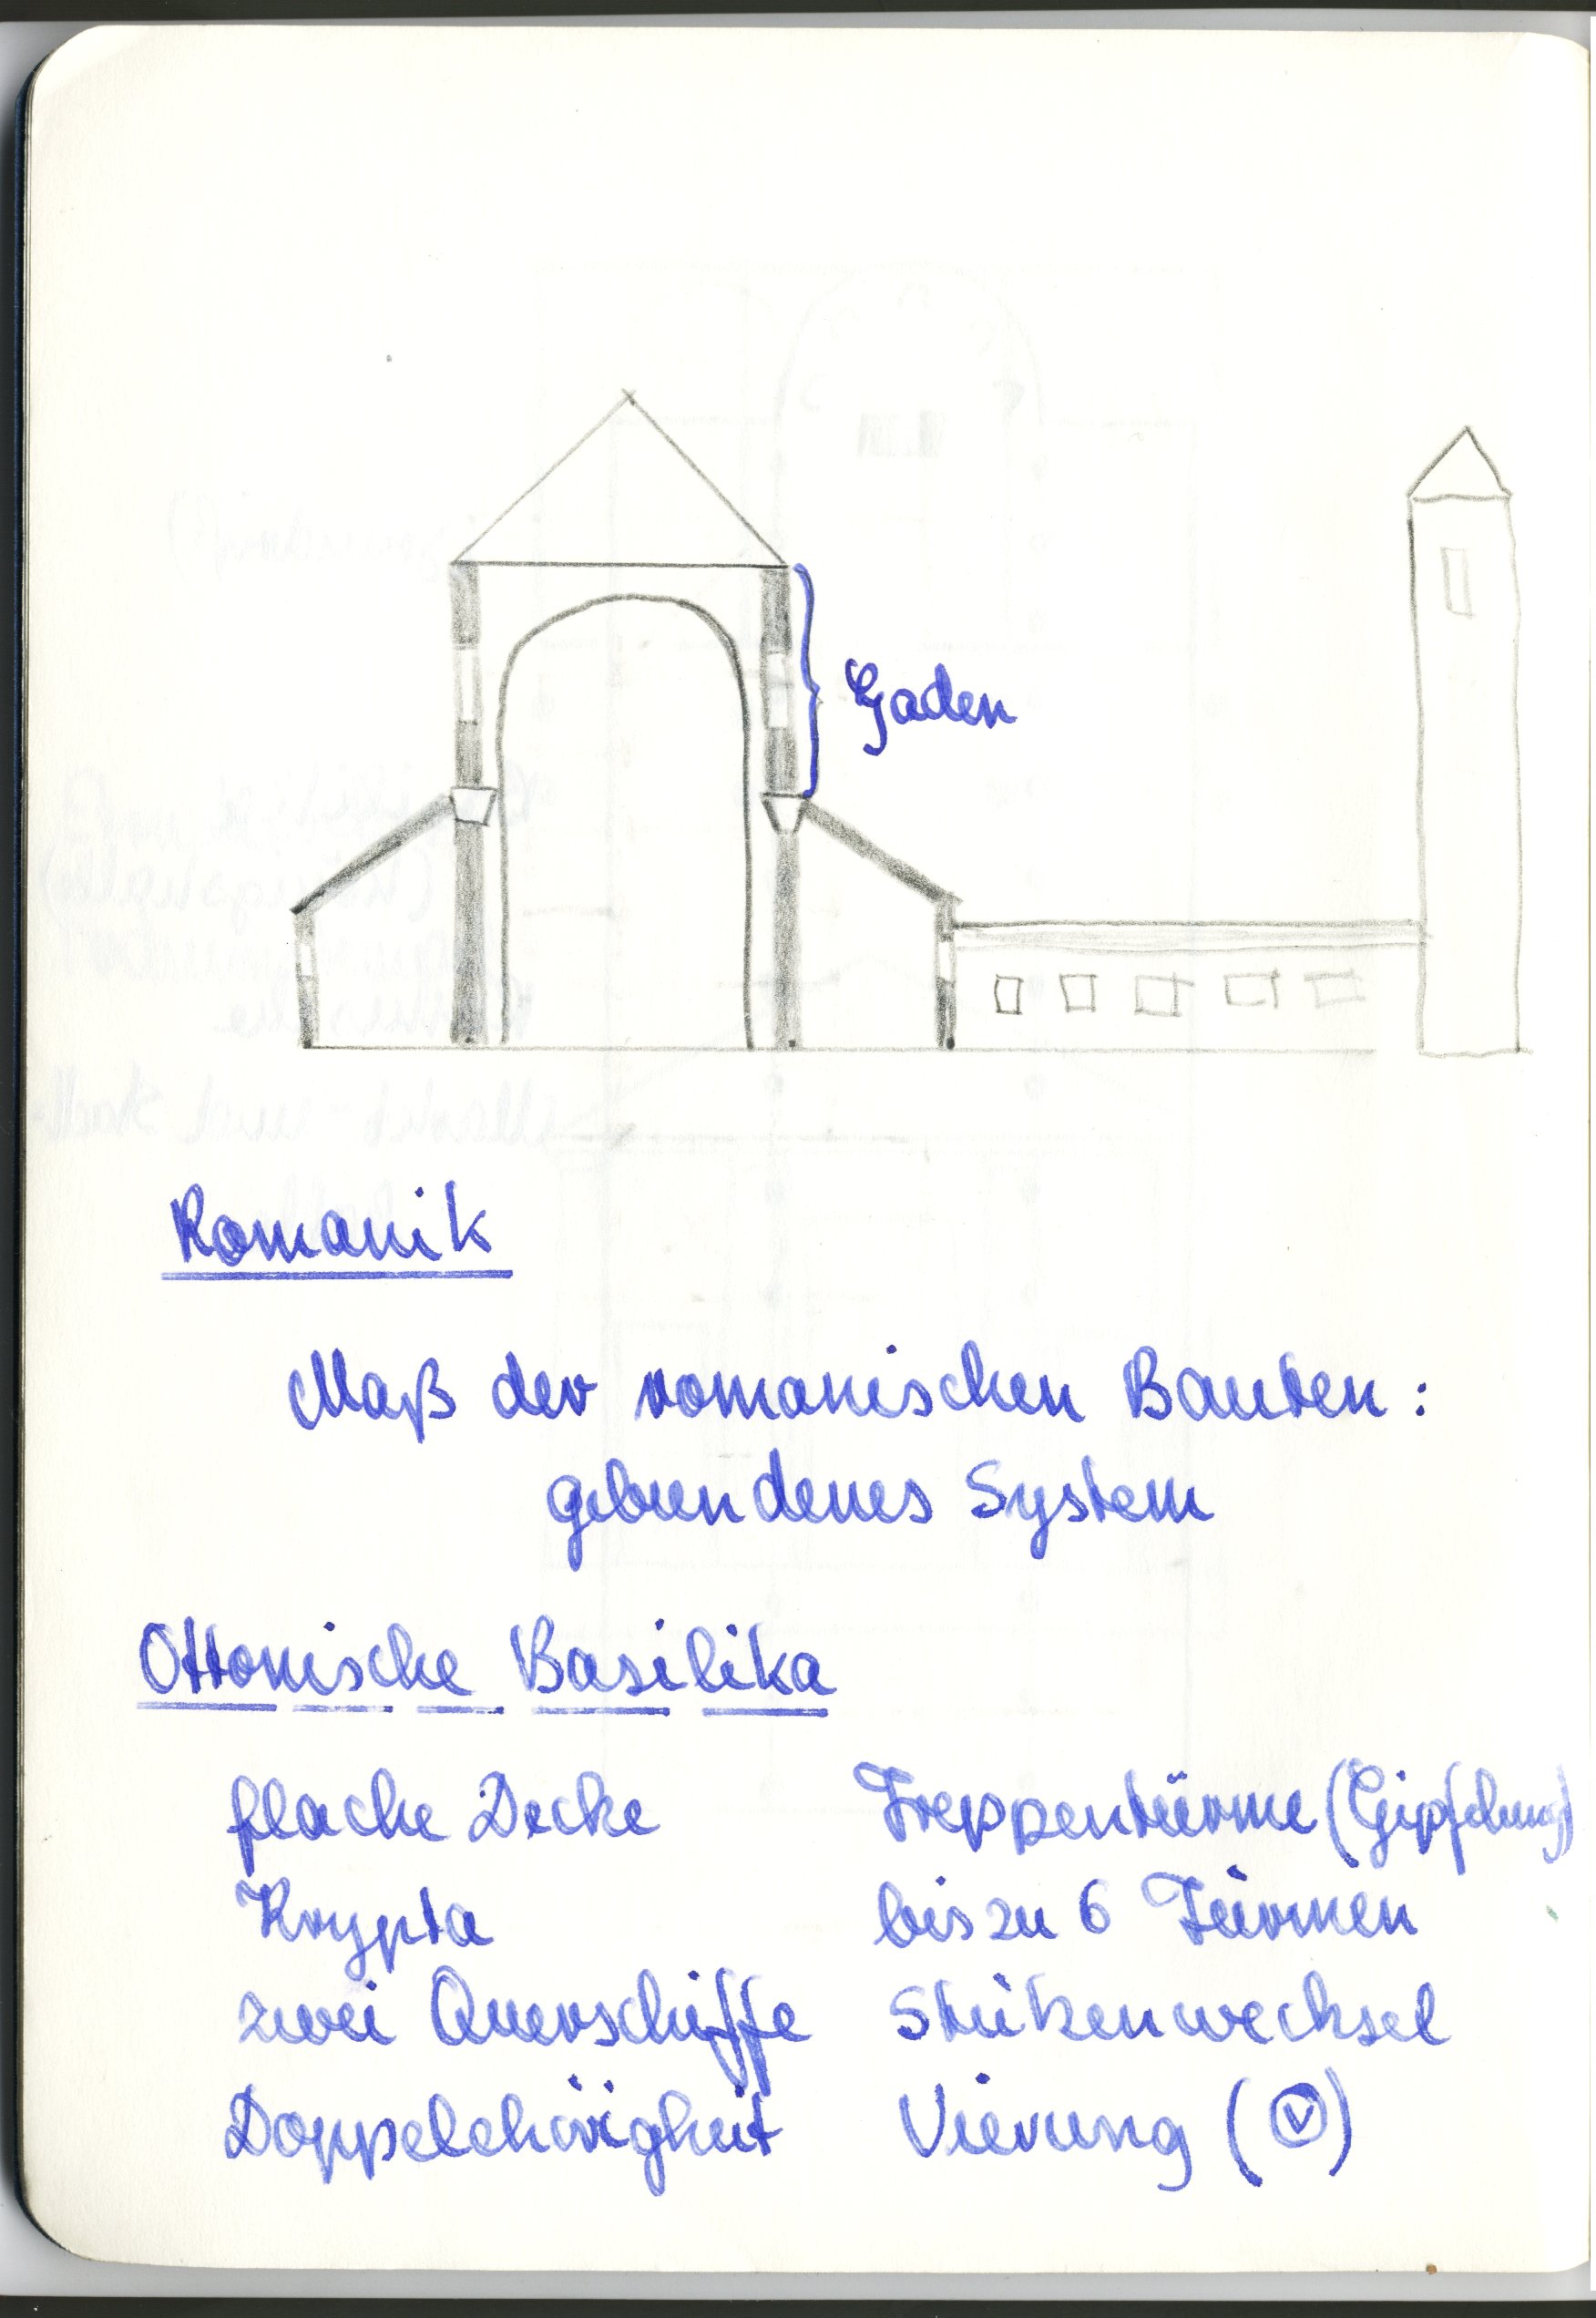 Gaden
Romanik
Maß der romanischen Bauten:
gebundenes System
Ottonische Basilika
flache Decke
Krypta
zwei Querschiffe
Doppelchörigkeit
Treppentürme (Gipfelung)
bis zu 6 Türmen
Stützenwechsel
Vierung (V)